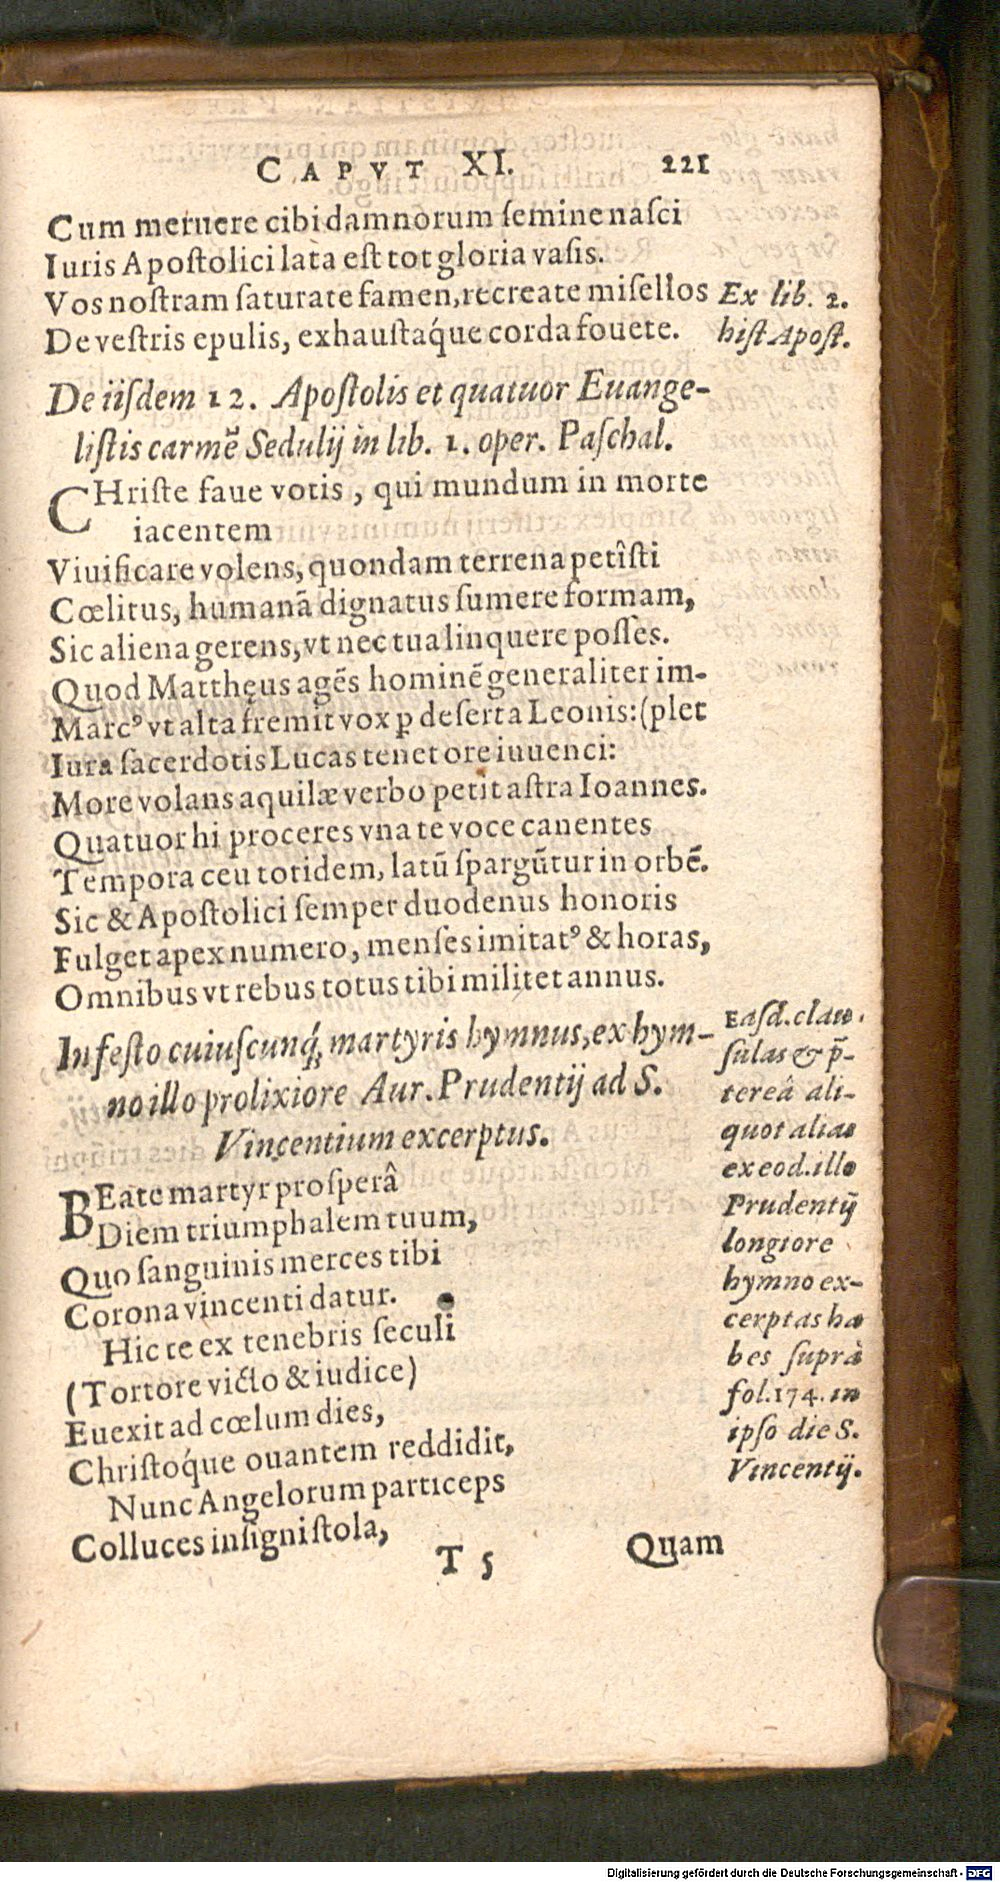 CAPVT XI. 221
Cum meruere cibi damnorum ſemine naſci
Iuris Apoſtolici lata est tot gloria vaſis.
Vos noſtram ſaturate famen, recreate miſellos
De veſtris epulis, exhauſtáque corda fouete.
Ex lib. 2.
hiſt Apoſt.
De iiſdem 12. Apoſtolis et quatuor Euange-
liſtis carmẽ Sedulij in lib. 1. oper. Paſchal.
CHriſte faue votis, qui mundum in morte
iacentem
Viuificare volens, quondam terrena petîſti
Cœlitus, humanã dignatus ſumere formam,
Sic aliena gerens, vt nec tua linquere poſſes.
Quod Matthęus agẽs hominẽ generaliter im-
Marcꝰ vt alta fremit vox ꝑ deſerta Leonis: (plet
Iura ſacerdotis Lucas tenet ore iuuenci:
More volans aquilæ verbo petit aſtra Ioannes.
Quatuor hi proceres vna te voce canentes
Tempora ceu totidem, latũ ſpargũtur in orbẽ.
Sic & Apoſtolici ſemper duodenus honoris
Fulget apex numero, menſes imitatꝰ & horas,
Omnibus vt rebus totus tibi militet annus.
In feſto cuiuſcunq́; martyris hymnus, ex hym-
no illo prolixiore Aur. Prudentij ad S.
Vincentium excerptus.
BEate martyr proſperâ
Diem triumphalem tuum,
Quo ſanguinis merces tibi
Corona vincenti datur.
Hic te ex tenebris ſeculi
(Tortore victo & iudice)
Euexit ad cœlum dies,
Chriſtóque ouantem reddidit,
Nunc Angelorum particeps
Colluces inſigni ſtola,
Eaſd. clau-
ſulas & p̃-
tereà ali-
quot alias
ex eod. illo
Prudentij
longiore
hymno ex-
cerptas ha
bes ſuprà
fol. 174. in
ipſo die S.
Vincentij.
T 5 Quam
Digitalisierung gefördert durch die Deutsche Forschungsgemeinschaft - DFG